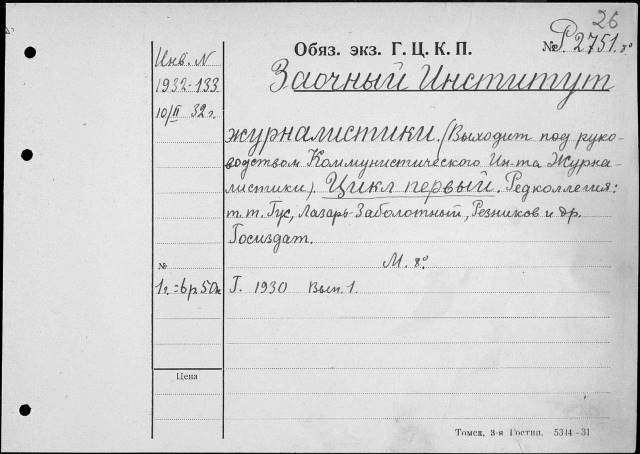 26
Обяз. экз. Г. Ц. К. П.
№ Р 2751.80
Инв. N
1932-133
10/II 32 г.
Заочный Институт
журналистики. (Выходит под руко-
водством Коммунистического Ин-та Журна-
листики). Цикл первый. Редколлегия:
т.т. Гус, Лазарь Заболотный, Резников и др.
Госиздат.
М. 8°
№
1 г. = 6 р. 50 к
Г. 1930 Вып. 1.
Цена
Томск, 3-я Гостип. 5344-31